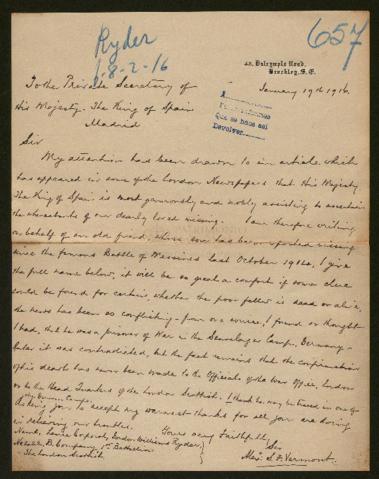 Ryder
18-2-16
657
Dalrymple Road,
Brockley, S.E.
January 19th 1916.
To the Private Secretary of
His Majesty. The King of Spain
Madrid
Que se hace así
Devolver
Sir
My attention had been drawn to an article which
has appeared in some of the London Newspapers that His Majesty
The King of Spain is most generously and nobly assisting to ascertain
the whereabouts of our dearly loved missing. I am therefore writing
on behalf of an old friend, whose son has been reported missing
since the famous Battle of Messines last October 1914, I give
the full name below, it will be so great a comfort if some clue
could be found for certain, whether the poor fellow is dead or alive,
the news has been so conflicting - from one source, I found or thought
I had, that he was a prisoner of War in the Camp, Germany -
later it was contradicted, but the fact remains that the confirmation
of his death has never been made to the Officials of the War Office, London
or to the Head Quarters of the London Scottish. I thank he may be traced in one of
the German Camps.
Asking you to accept my warmest thanks for all you are doing
in relieving our troubles.
Yours very Faithfully,
Sir
Name, Lance Corporal, Lindsor Williams Ryder
B. Company 1st Battalion
The London Scottish
Mrs. S. F. Vermont.